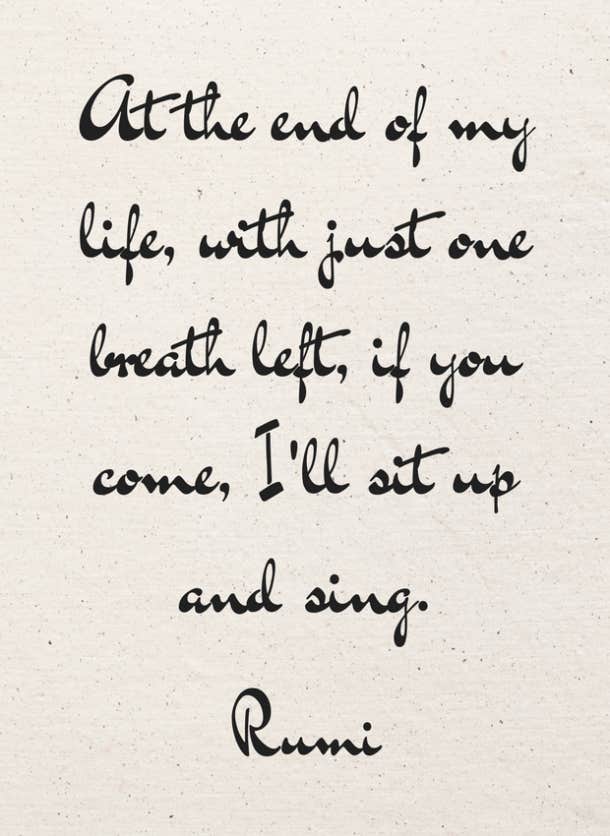 At the end of my
life, with just one
breath left, if you
come, I'll sit up
and sing.
Rumi